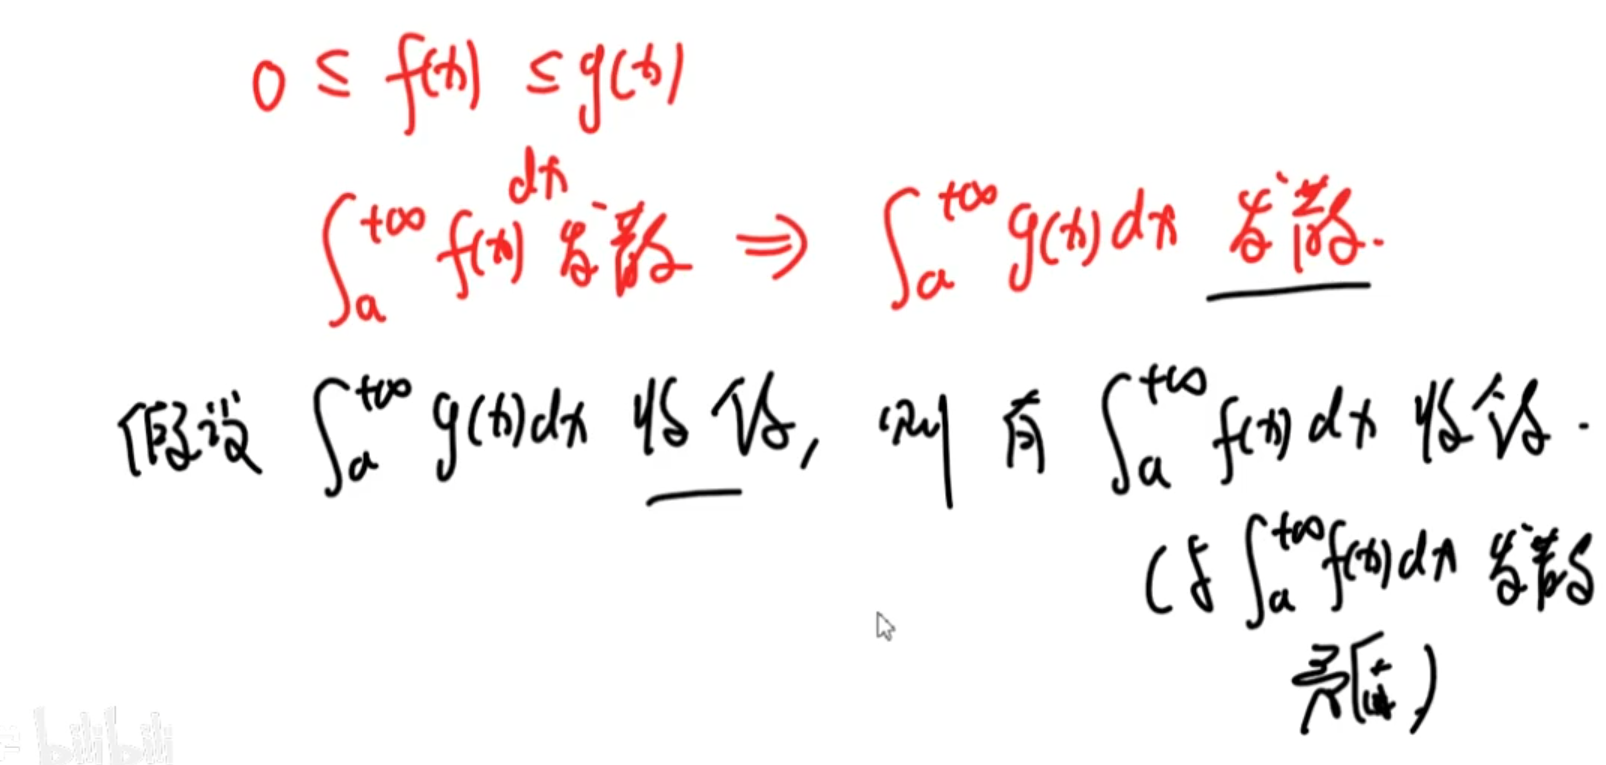 0 ≤ f(x) ≤ g(x)
∫_a^{+∞} f(x) dx 发散 ⇒ ∫_a^{+∞} g(x) dx 发散.
假设 ∫_a^{+∞} g(x) dx 收敛, 则有 ∫_a^{+∞} f(x) dx 收敛.
(与 ∫_a^{+∞} f(x) dx 发散
矛盾)
bilibili